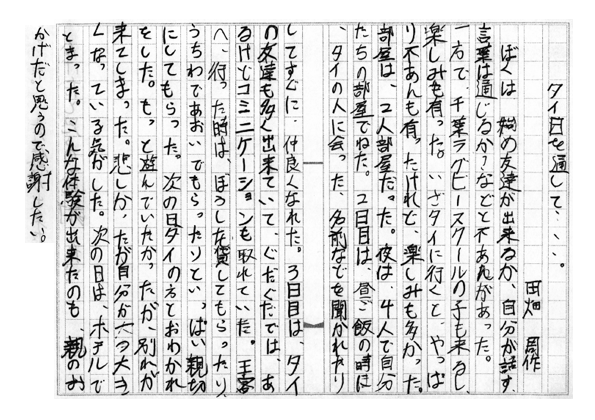 タイ日を通して・・・。
田畑 周作
ぼくは、始め友達が出来るか、自分が話す
言葉は通じるか?などと不あんがあった。
一方で、千葉ラグビースクールの子も来るし、
楽しみも有った。いざタイに行くと、やっぱ
り不あんも有ったけれど、楽しみも多かった。
部屋は、2人部屋だった。夜は、4人で自分
たちの部屋でねた。2日目は、昼ご飯の時に
、タイの人に会った、名前などを聞かれたり
してすぐに、仲良くなれた。3日目は、タイ
の友達も多く出来ていて、ぐだぐだでは、あ
るけどコミニケーションも取れていた。王宮
へ、行った時は、ぼうしを貸してもらったり、
うちわであおいでもらったりといっぱい親切
にしてもらった。次の日タイの方とおわかれ
をした。もっと遊んでいたかったが、別れが
来てしまった。悲しかったが自分が一つ大き
くなっている気がした。次の日は、ホテルで
とまった。こんな体験が出来たのも、親のお
かげだと思うので感謝したい。